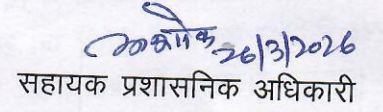 26/3/2026
सहायक प्रशासनिक अधिकारी